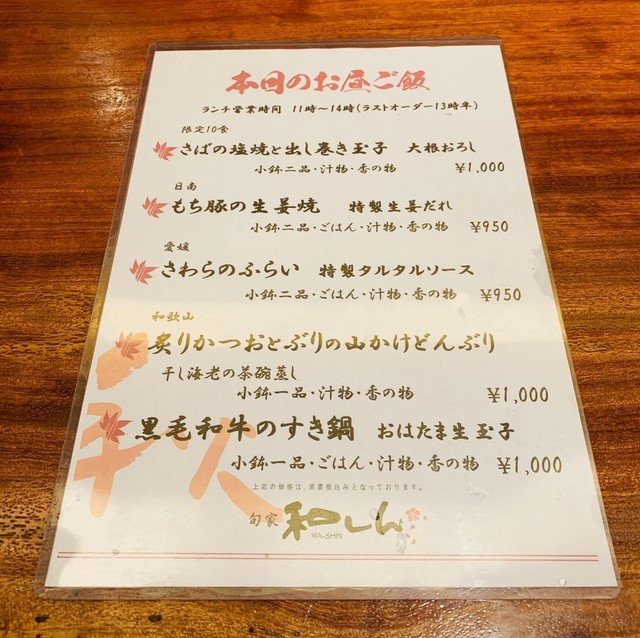 本日のお昼ご飯
ランチ営業時間 11時〜14時(ラストオーダー13時半)
限定10食
さばの塩焼と出し巻き玉子 大根おろし
小鉢二品・汁物・香の物 ¥1,000
日南
もち豚の生姜焼 特製生姜だれ
小鉢二品・ごはん・汁物・香の物 ¥950
愛媛
さわらのふらい 特製タルタルソース
小鉢二品・ごはん・汁物・香の物 ¥950
和歌山
炙りかつおとぶりの山かけどんぶり
干し海老の茶碗蒸し
小鉢一品・汁物・香の物 ¥1,000
黒毛和牛のすき鍋 おはたま生玉子
小鉢一品・ごはん・汁物・香の物 ¥1,000
上記の価格は、消費税込みとなっております。
旬家 和しん
WA-SHIN